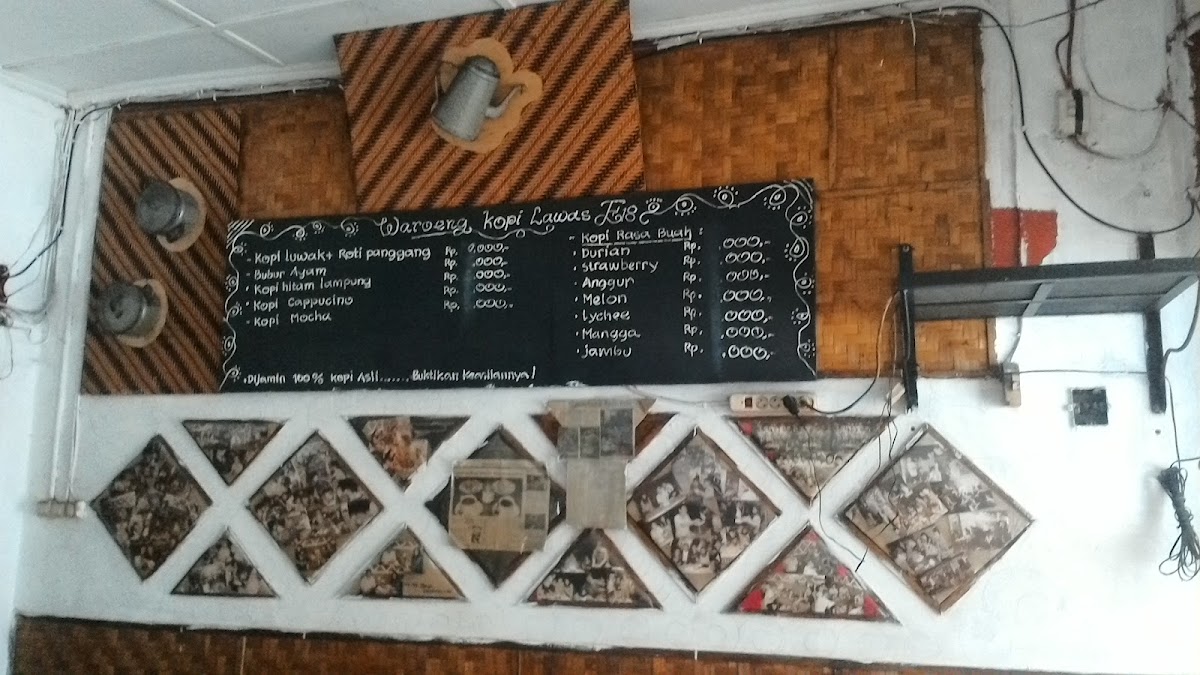 Waroeng Kopi Lawas E18
- Kopi luwak + Roti panggang Rp. 0.000,-
- Bubur Ayam Rp. .000,-
· Kopi hitam lampung Rp. .000,-
· Kopi Cappucino Rp. .000,-
- Kopi Mocha Rp. .000,-
- Kopi Rasa Buah :
· Durian Rp. .000,-
· Strawberry Rp. .000,-
· Anggur Rp. .000,-
· Melon Rp. .000,-
· Lychee Rp. .000,-
· Mangga Rp. .000,-
· Jambu Rp. .000,-
· Dijamin 100% kopi Asli....... Buktikan Keasliannya!